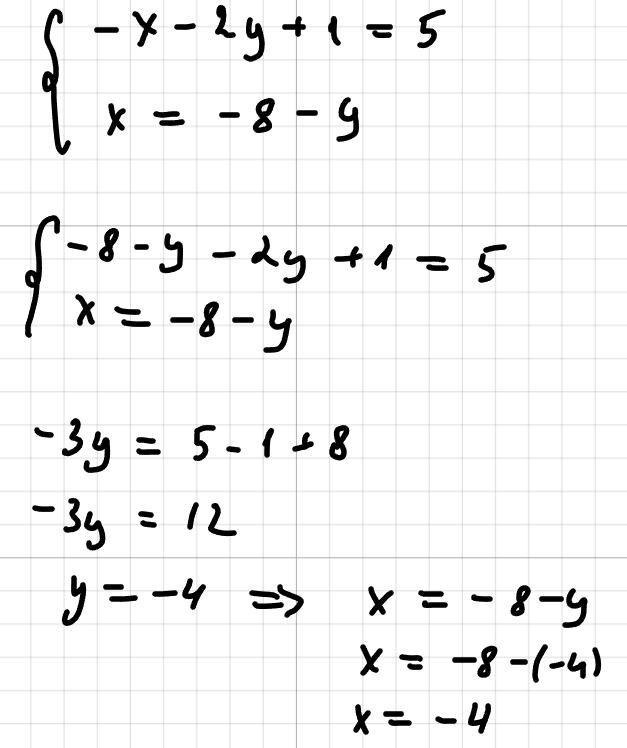 - x - 2y + 1 = 5
x = - 8 - y
- 8 - y - 2y + 1 = 5
x = - 8 - y
- 3y = 5 - 1 + 8
- 3y = 12
y = - 4 ⇒ x = - 8 - y
x = - 8 - (-4)
x = - 4